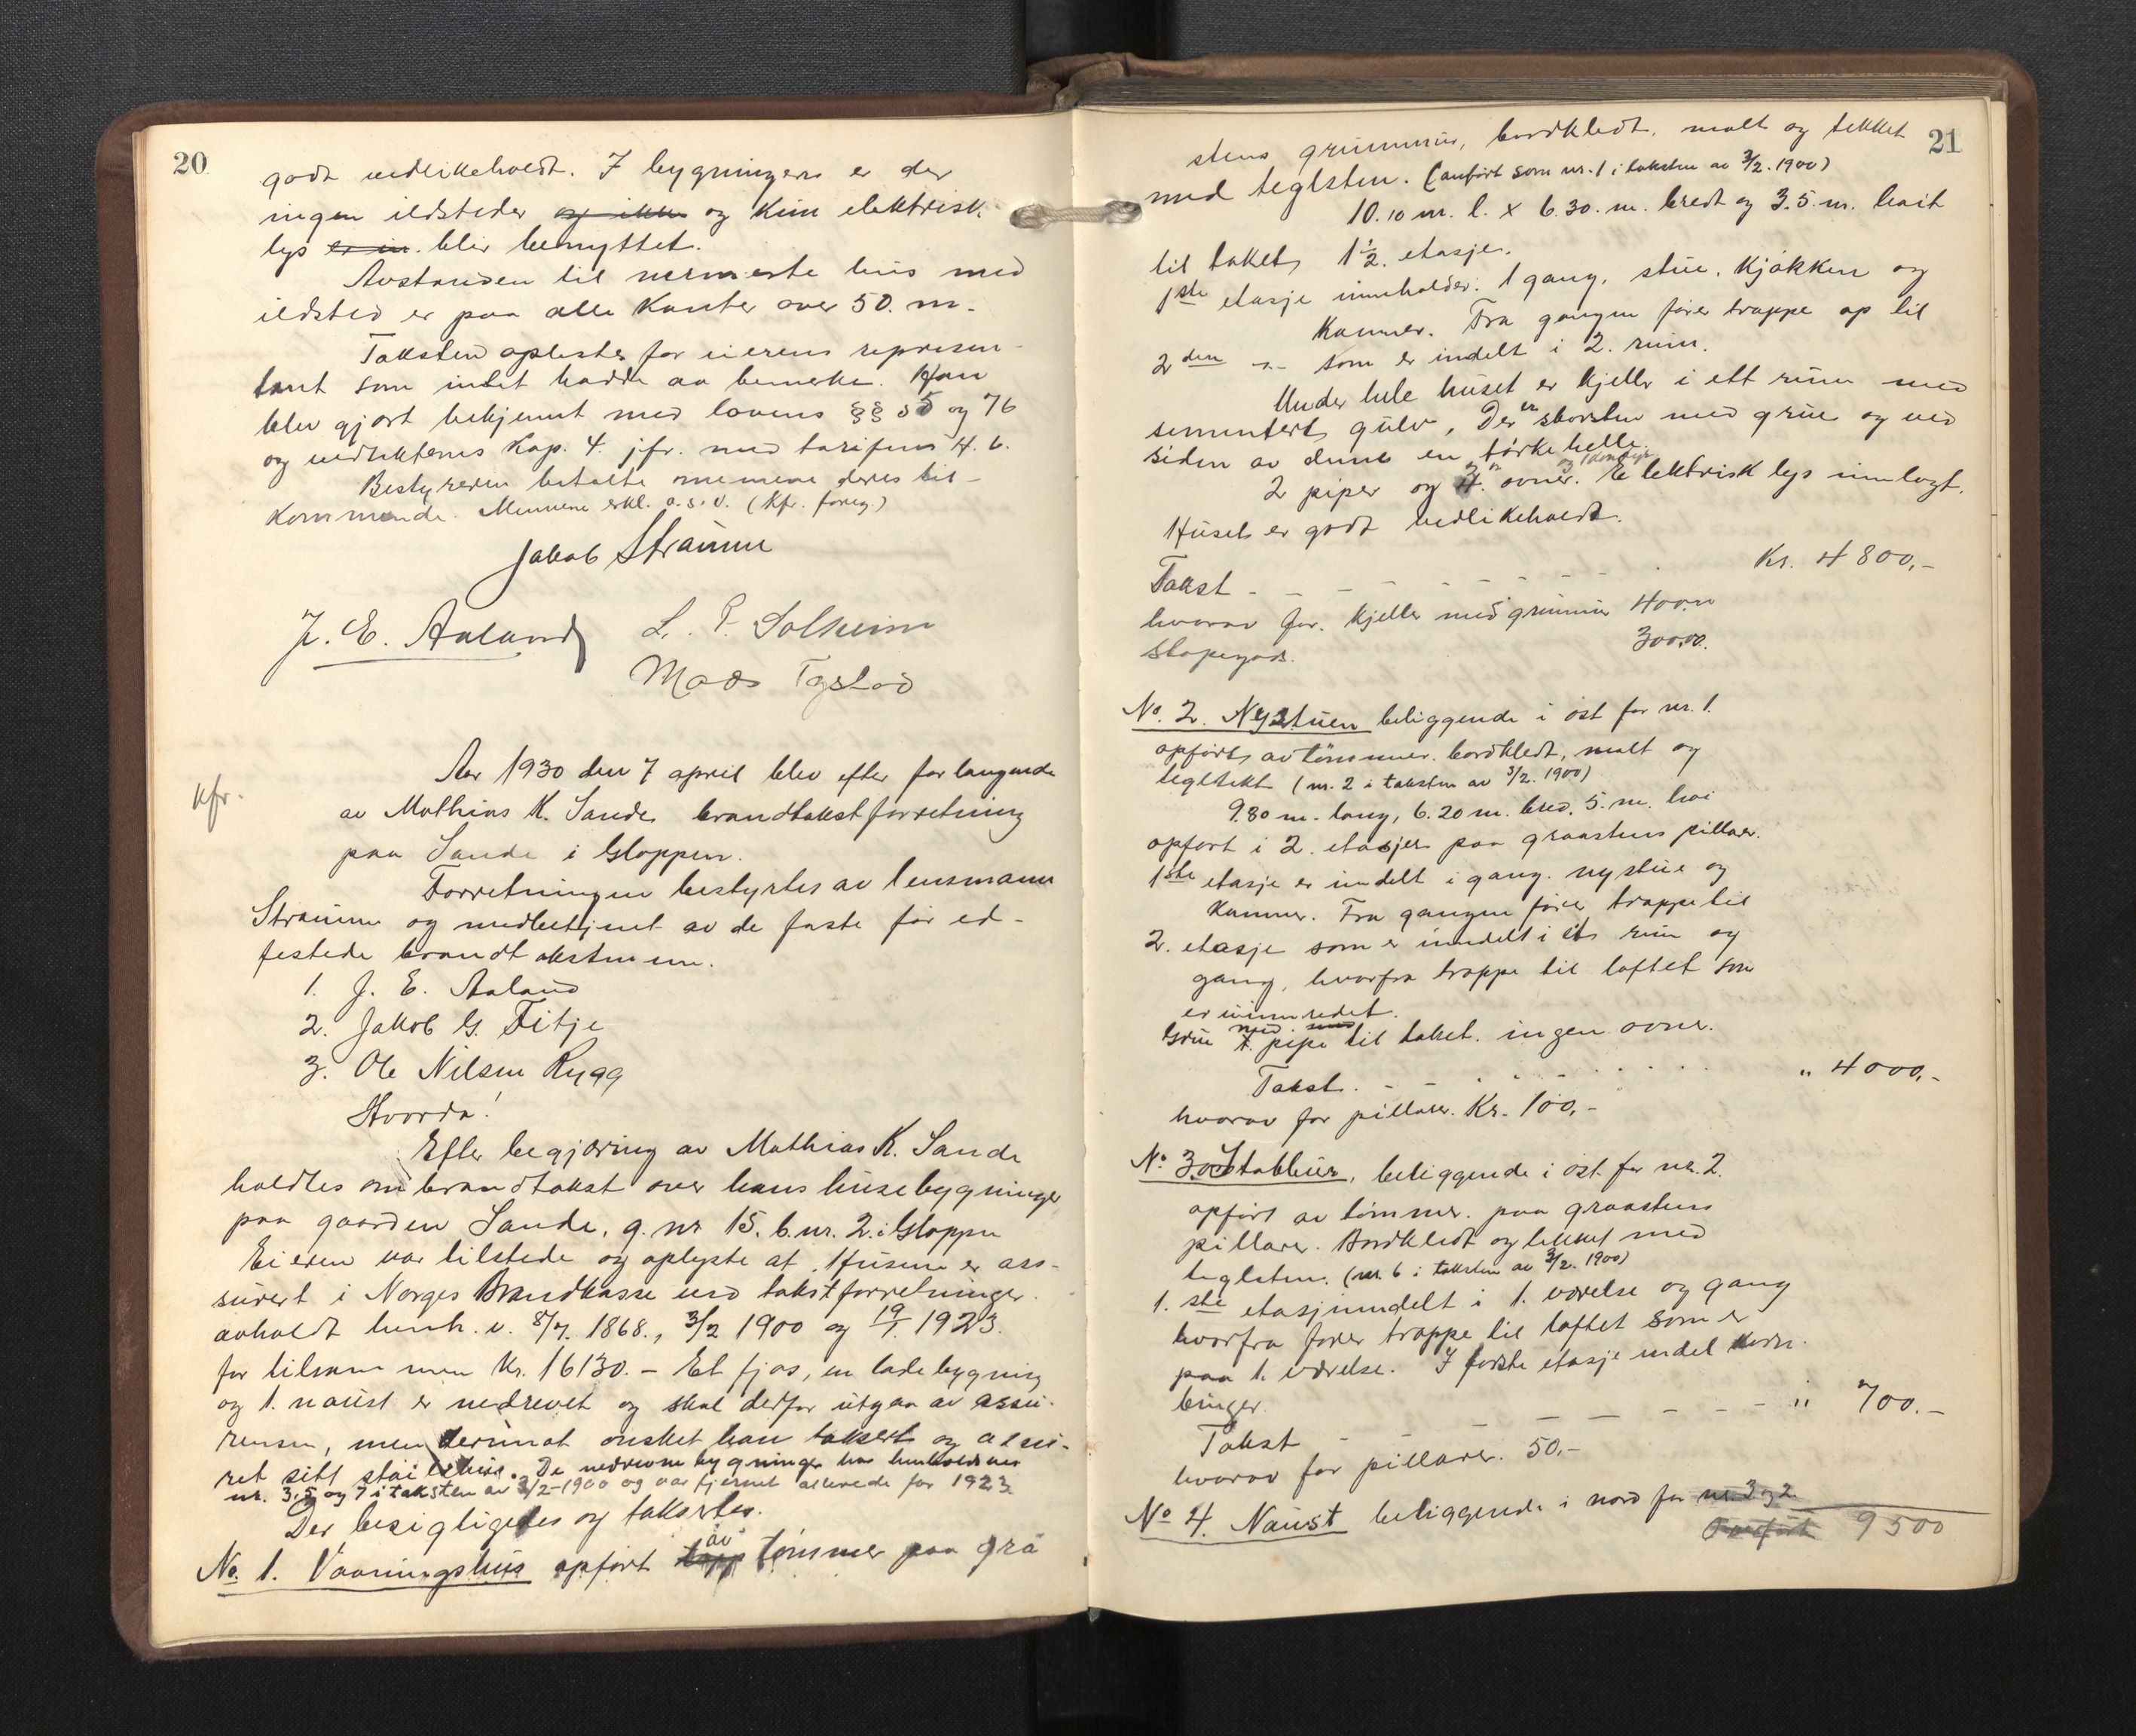 20
godt vedlikeholdt. I bygningen er der
ingen ildsteder og ikke og kun elektrisk
lys er in. blir benyttet.
Avstanden til nærmeste hus med
ildsted er paa alle kanter over 50. m.
Taksten oplestes for eierens represen-
tant som intet hadde aa bemerke. Han
blev gjort bekjent med lovens §§ 35 og 76
og vedtektenes kap. 4. jfr. med tarifens 4. 6.
Bestyreren betalte mennene deres til-
kommende. Mennene erkl. o.s.v. (kfr. foreg.)
Jakob Straume
J. E. Aaland L. P. Solheim
Mads Tystad
kfr.
Aar 1930 den 7 april blev efter forlangende
av Mathias K. Sande brandtakstforretning
paa Sande i Gloppen.
Forretningen bestyrtes av lensmann
Straume og medbetjent av de faste før ed-
festede brandtakstmenn.
1. J. E. Aaland
2. Jakob G. Fitje
3. Ole Nilsen Rygg
Hvorda!
Efter begjæring av Mathias K. Sande
holdtes ombrandtakst over hans husebygninger
paa gaarden Sande, g. nr 15. b. nr. 2. i Gloppen
Eieren var tilstede og oplyste at Husene er ass-
surert i Norges Brandkasse ved takstforretninger
avholdt henh. v. 8/7. 1868., 3/2 1900 og 19/7. 1923.
for tilsammen Kr. 16130.- Et fjøs, en ladebygning
og 1. naust er nedrevet og skal derfor utgaa av assu-
rensen, men derimot ønsket han taksert og assu-
ret sitt stabbur. De nedrevne bygninger har henholdsvis
nr. 3, 5 og 7 i taksten av 3/2-1900 og var fjernet allerede før 1923
Der besigtigedes og taksertes.
av
No. 1. Vaaningshus opført tapp tømmer paa grå
21
stens grunnmur, bordkledt, malt og tekket
med teglsten. (anført som nr. 1 i taksten av 3/2. 1900)
10.10 m. l. x 6.30. m. bredt og 3.5. m. høit
til taket, 1 1/2. etasje.
1ste etasje inneholder: 1 gang, stue, kjøkken og
kammer. Fra gangen fører trappe op til
2den -"- som er indelt i 2. rum.
Under hele huset er kjeller i ett rum med
sementert gulv, Der er skorsten med grue og ved
siden av denne en tørkehelle.
2 piper og 4. ovner. Elektrisk lys innlagt.
Huset er godt vedlikeholdt.
Takst - - - - - - Kr. 4800,-
hvorav for. kjeller med grunmur 400.00
støpegods. 300.00.
No. 2. Nystuen beliggende i øst for nr. 1.
opført av tømmer. bordkledt, malt og
tegltekt (nr. 2 i taksten av 3/2. 1900)
9.80 m. lang, 6.20 m. bred, 5. m. høi
opført i 2. etasjer paa graastens pillarer.
1ste etasje er inndelt i gang. nystue og
kammer. Fra gangen fører trappe til
2. etasje som er inndelt i et rum og
gang, hvorfra trappe til loftet som
er innredet.
Grue med pipe til taket. ingen ovner.
Takst. - - - - - " 4000,-
hvorav for pillarer. Kr. 100,-
No 3. Stabbur, beliggende i øst for nr. 2.
opført av tømmer. paa graastens
pillarer. Bordkledt og tekket med
teglsten. (nr. 6 i taksten av 3/2. 1900)
1. ste etasje inndelt i 1. værelse og gang
hvorfra fører trappe til loftet som er
paa 1. værelse. I første etasje endel korn-
binger.
Takst - - - - - - " 700.-
hvorav for pillarer. 50,-
No 4. Naust beliggende i nord for nr. 3 og 2
Overført 9500